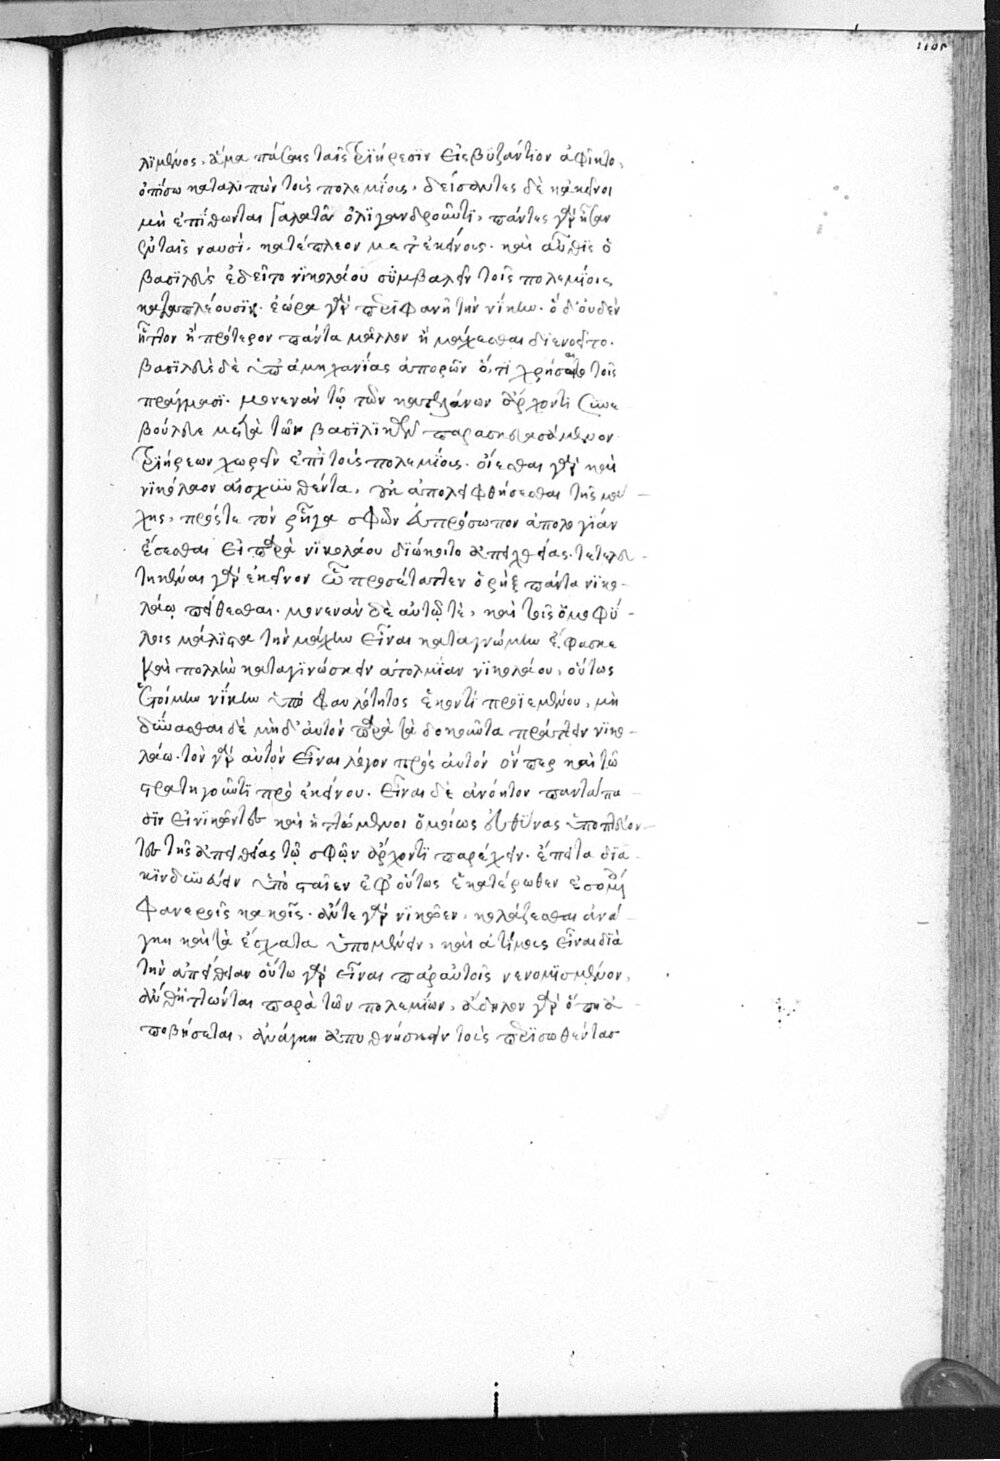 λϊμένος, ἅμα πάσαις ταῖς τριήρεσϊν εἰς βϋζάντϊον ἀφῖκτο,
ὀπίσω καταλιπὼν τοὺς πολεμίους. δείσαντες δὲ κἀκεῖνοι
μὴ ἐπίθωνται γαλατᾶν ὀλϊγανδροῦντϊ, πάντες γὰρ ἦσαν
ἐν ταῖς ναυσὶ, κατέπλεον μετ' ἐκείνους. καὶ αὖθις ὁ
βασϊλεὺς ἐδεῖτο νϊκολάου σϋμβαλεῖν τοῖς πολεμίοις
καταπλέουσϊν. ἑώρα γὰρ περϊφανῆ τὴν νίκην. ὁ δ' οὐδὲν
ἧττον ἢ πρότερον πάντα μᾶλλον ἢ μάχεσθαι δϊενοεῖτο.
βασϊλεὺς δὲ ὑπ' ἀμηχανίας ἀπορῶν ὅ,τϊ χρήσαιτο τοῖς
πράγμασϊ. μονεναν τῷ τῶν κατελάνων ἄρχοντϊ συνε
βούλευε μετὰ τῶν βασϊλϊκῶν παρασκευασάμενον
τριήρεων χωρεῖν ἐπὶ τοὺς πολεμίους. οἴεσθαι γὰρ καὶ
νϊκόλαον αἰσχυνθέντα, οὐκ ἀπολειφθήσεσθαι τῆς μά
χης, πρός τε τὸν ῥῆγα σφῶν εὐπρόσωπον ἀπολογίαν
ἔσεσθαι εἰ παρὰ νϊκολάου δϊώκοιτο ἀπειθείας. τετελευ
τηκέναι γὰρ ἐκεῖνον ᾧ προσέταττεν ὁ ρὴξ πάντα νϊκο
λάῳ πείθεσθαι. μονεναν δὲ αὐτῷ τὲ, καὶ τοῖς ὁμοφύ
λοις μάλϊστα τὴν μάχην εἶναι καταγνώμην ἔφασκε
καὶ πολλὴν καταγϊνώσκειν ἀτολμίαν νϊκολάου, οὕτως
ἑτοίμην νίκην ὑπὸ φαυλότητος ἑκοντὶ προϊεμένου, μὴ
δύνασθαι δὲ μηδ' αὐτὸν παρὰ τὰ δοκοῦντα πράττειν νϊκο
λάω. τὸν γὰρ αὐτὸν εἶναι λόγον πρὸς αὐτὸν ὅνπερ καὶ τῷ
στρατηγοῦντϊ πρὸ ἐκείνου. εἶναι δὲ ἀνόητον πανταπα
σϊν εἰ νϊκῶντες καὶ ἡττώμενοι ὁμοίως εὐθύνας ὑποπτεύον
τες τῆς ἀπειθείας τῷ σφῶν ἄρχοντϊ παρέχειν. ἔπειτα δϊα
κϊνδυνεύειν ὑπὸ ταῖεν ἐφ' οὕτως ἑκατέρωθεν ἐσομένοις
φανεροῖς κακοῖς. ἄν τε γὰρ νϊκῷεν, κολάζεσθαι ἀνά
γκη καὶ τὰ ἔσχατα ὑπομένειν, καὶ ἀτίμοις εἶναι δϊὰ
τὴν ἀπείθειαν οὕτω γὰρ εἶναι παρ' αὐτοῖς νενομϊσμένον,
ἄν θ' ἡττῶνται παρὰ τῶν πολεμίων, ἄδηλον γὰρ ὅπη ἀ
ποβήσεται, ἀνάγκη ἀποθνήσκειν τοὺς περϊσωθέντας